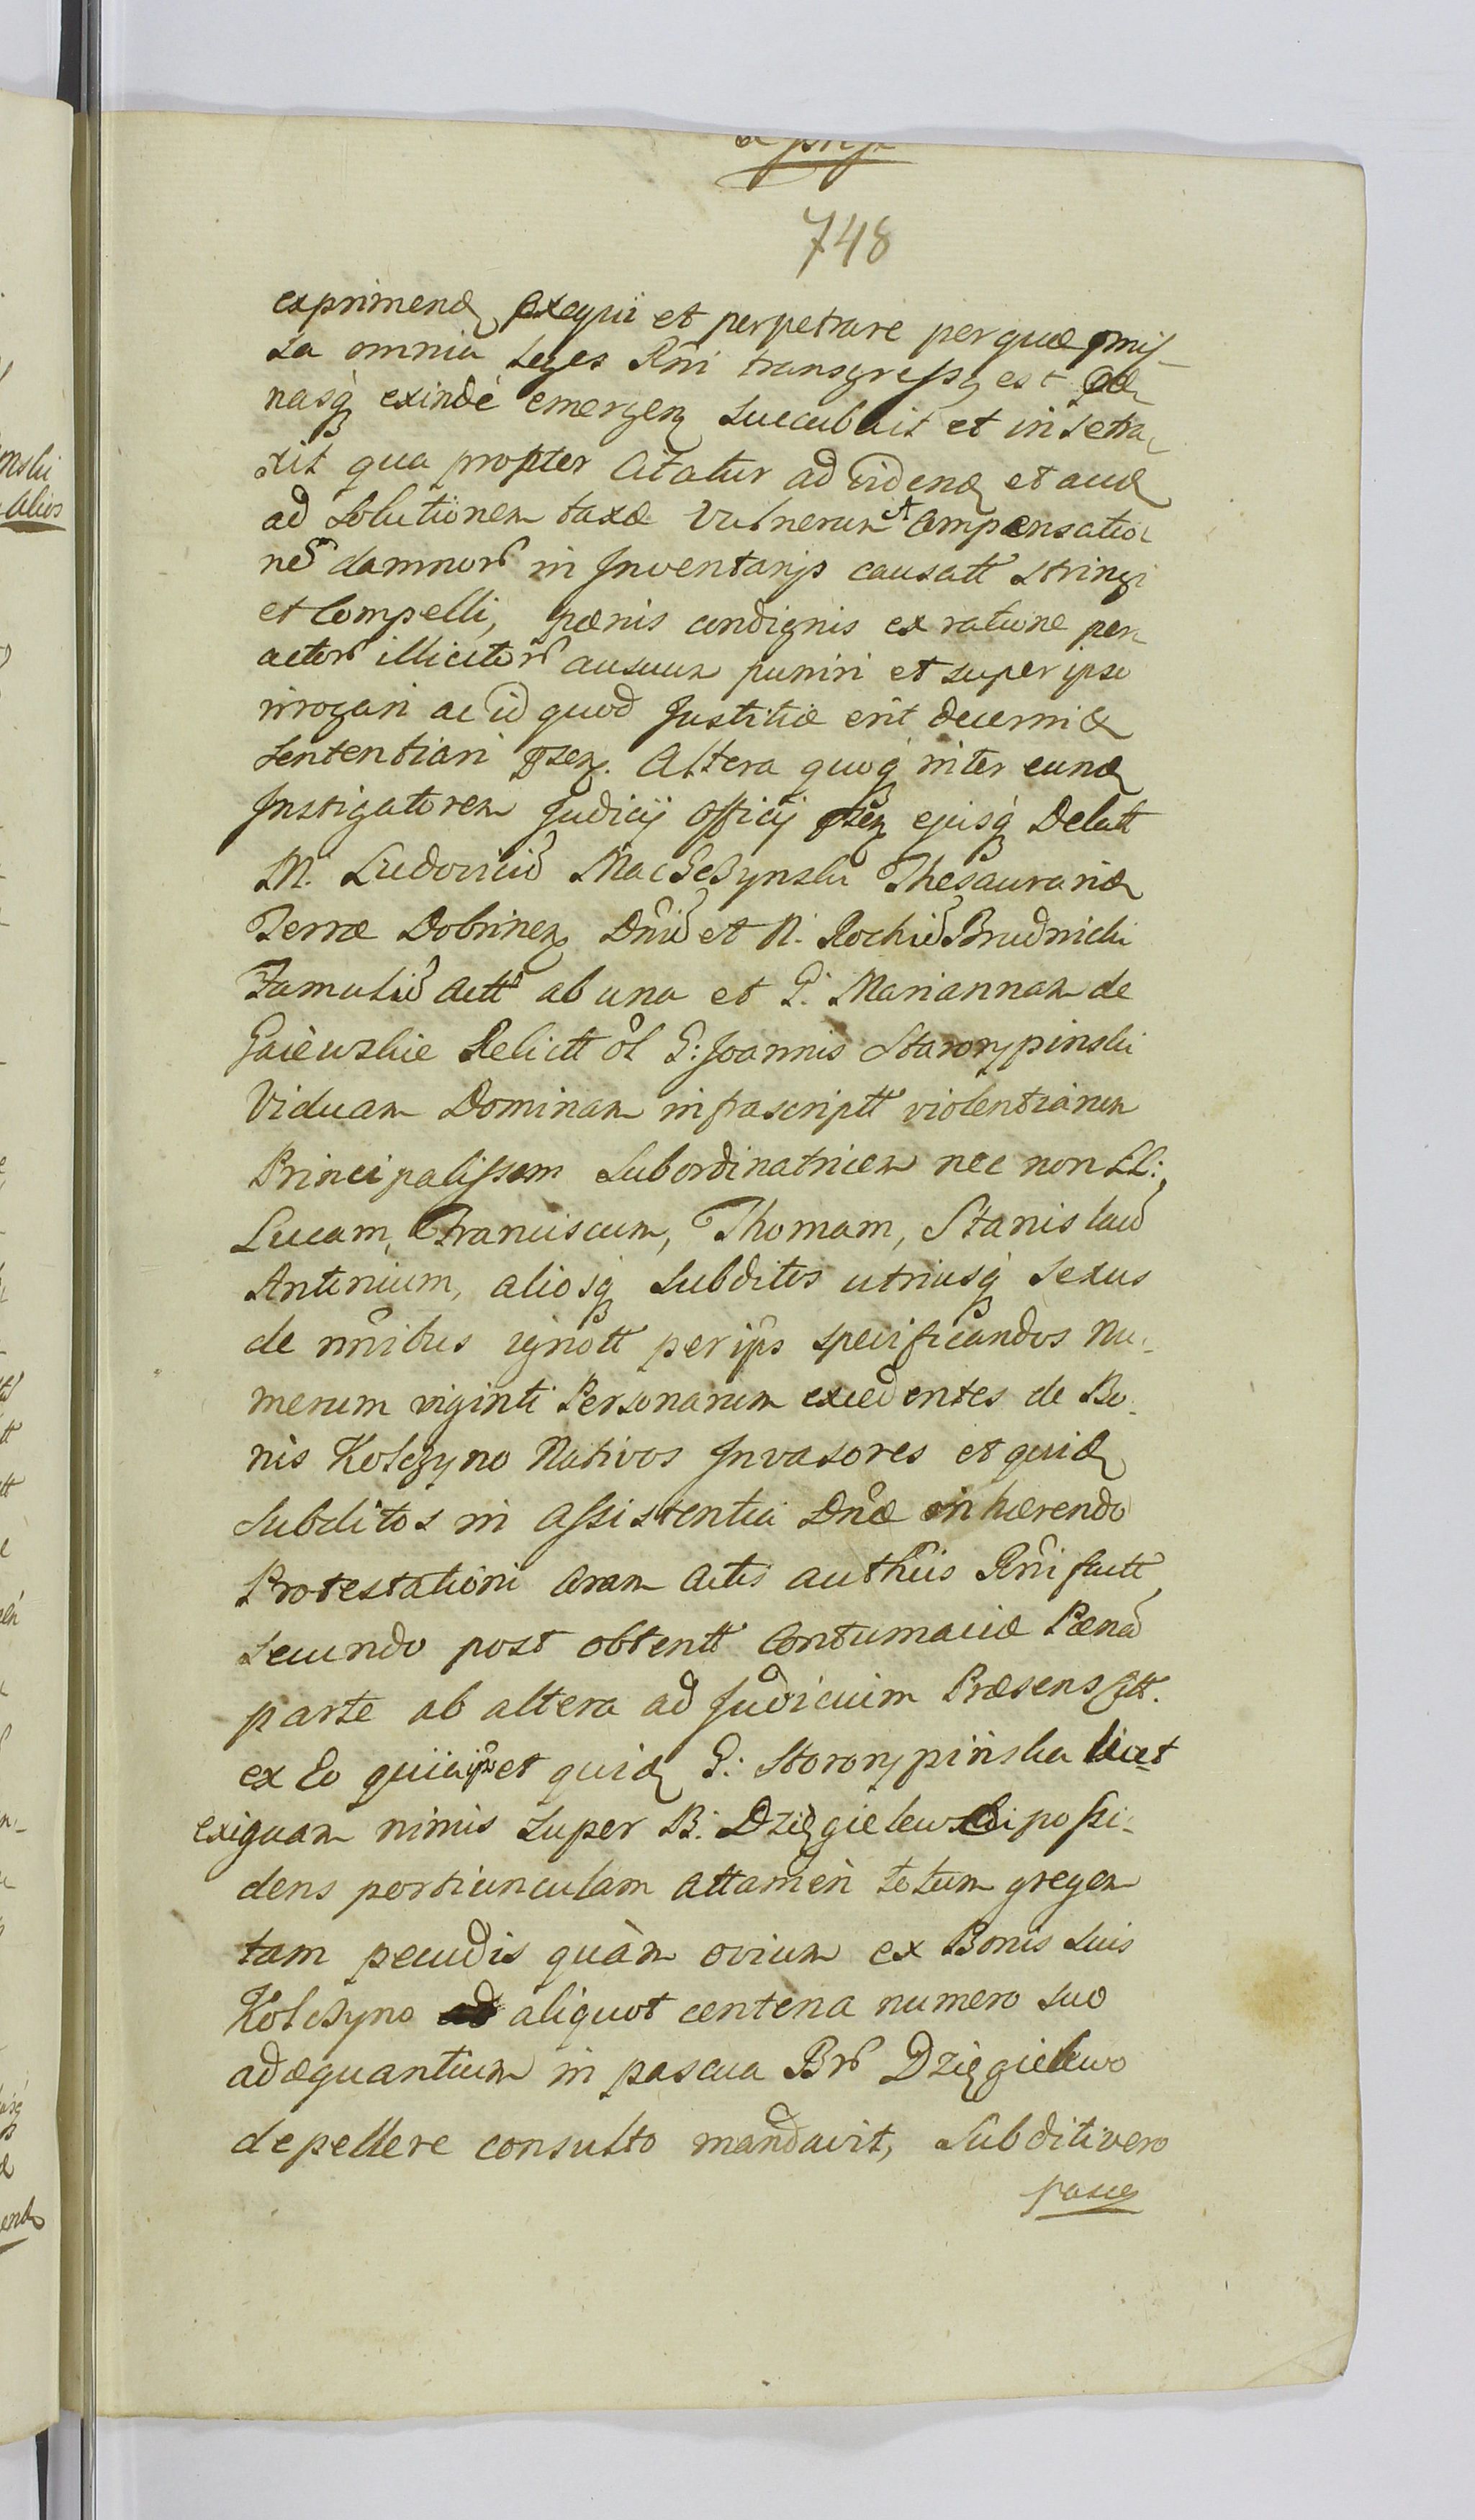 748
exprimend exequi et perpetrare per quæ pmis-
sa omnia Leges Rni transgressq est Pæ
nasq exindè emergen succubuit et in se tra
xit qua propter Citatur ad vidend et aud
ad Solutionem taxæ Vulnerum et Compensatio
nē damnor in Inventarijs causatt stringi
et Compelli, pænis condignis ex ratione per
actor illicitor ausuum puniri et super ipso
irrogari ac id quod Justitiæ erit decerni &
Sententiari psen. Altera quoq inter eund
Instigatorem Judicij Officij psen ejusq Delatt
M. Ludovicū Macieszynski Thesaurarid
Terræ Dobrinen Dnū et N. Rochū Brudnicki
Famulū Actt ab una et G. Mariannam de
Gaiewskie Relictt ol G: Joannis Starorypinski
Viduam Dominam infrascriptt violentiarum
Principalissam Subordinatricem nec non LL:
Lucam, Franciscum, Thomam, Stanislaū
Antonium, aliosq Subditos utriusq Sexus
de nnibus ignott per ips specificandos Nu-
merum viginti Personarum excedentes de Bo-
nis Kolczyno Nativos Invasores et quid
Subditos in Assistentia Dnæ inhærendo
Protestationi Coram Actis authcis Rni factt
Secundo post obtentt Contumaciæ Pænā
parte ab altera ad Judicium Præsens Citt.
ex Eo quia ipsi et quid G: Starorypinska licet
exiguam nimis super B: Dzięgielewski possi-
dens portiunculam attamen totum gregem
tam pecudis quàm ovium ex Bonis suis
Kolczyno aliquot centena numero suo
adæquantium in pascua Br Dzięgielewo
depellere consulto mandavit, Subditi vero